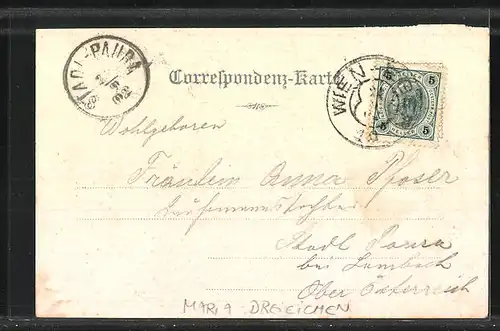 STADL-PAURA
Correspondenz-Karte
WIEN
5 5
5 5
HELLER
Wohlgeboren
Fräulein Anna Pfoser
Kaufmannstochter
Stadl Paura
bei Lambach
Ober Österreich
MARIA DREIEICHEN